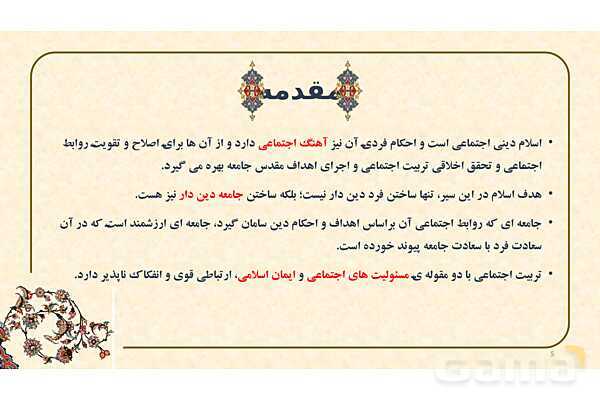 مقدمه
• اسلام دینی اجتماعی است و احکام فردی آن نیز آهنگ اجتماعی دارد و از آن ها برای اصلاح و تقویت روابط
اجتماعی و تحقق اخلاقی تربیت اجتماعی و اجرای اهداف مقدس جامعه بهره می گیرد.
• هدف اسلام در این سیر، تنها ساختن فرد دین دار نیست؛ بلکه ساختن جامعه دین دار نیز هست.
• جامعه ای که روابط اجتماعی آن براساس اهداف و احکام دین سامان گیرد، جامعه ای ارزشمند است که در آن
سعادت فرد با سعادت جامعه پیوند خورده است.
• تربیت اجتماعی با دو مقوله ی مسئولیت های اجتماعی و ایمان اسلامی، ارتباطی قوی و انفکاک ناپذیر دارد.
5
Gama